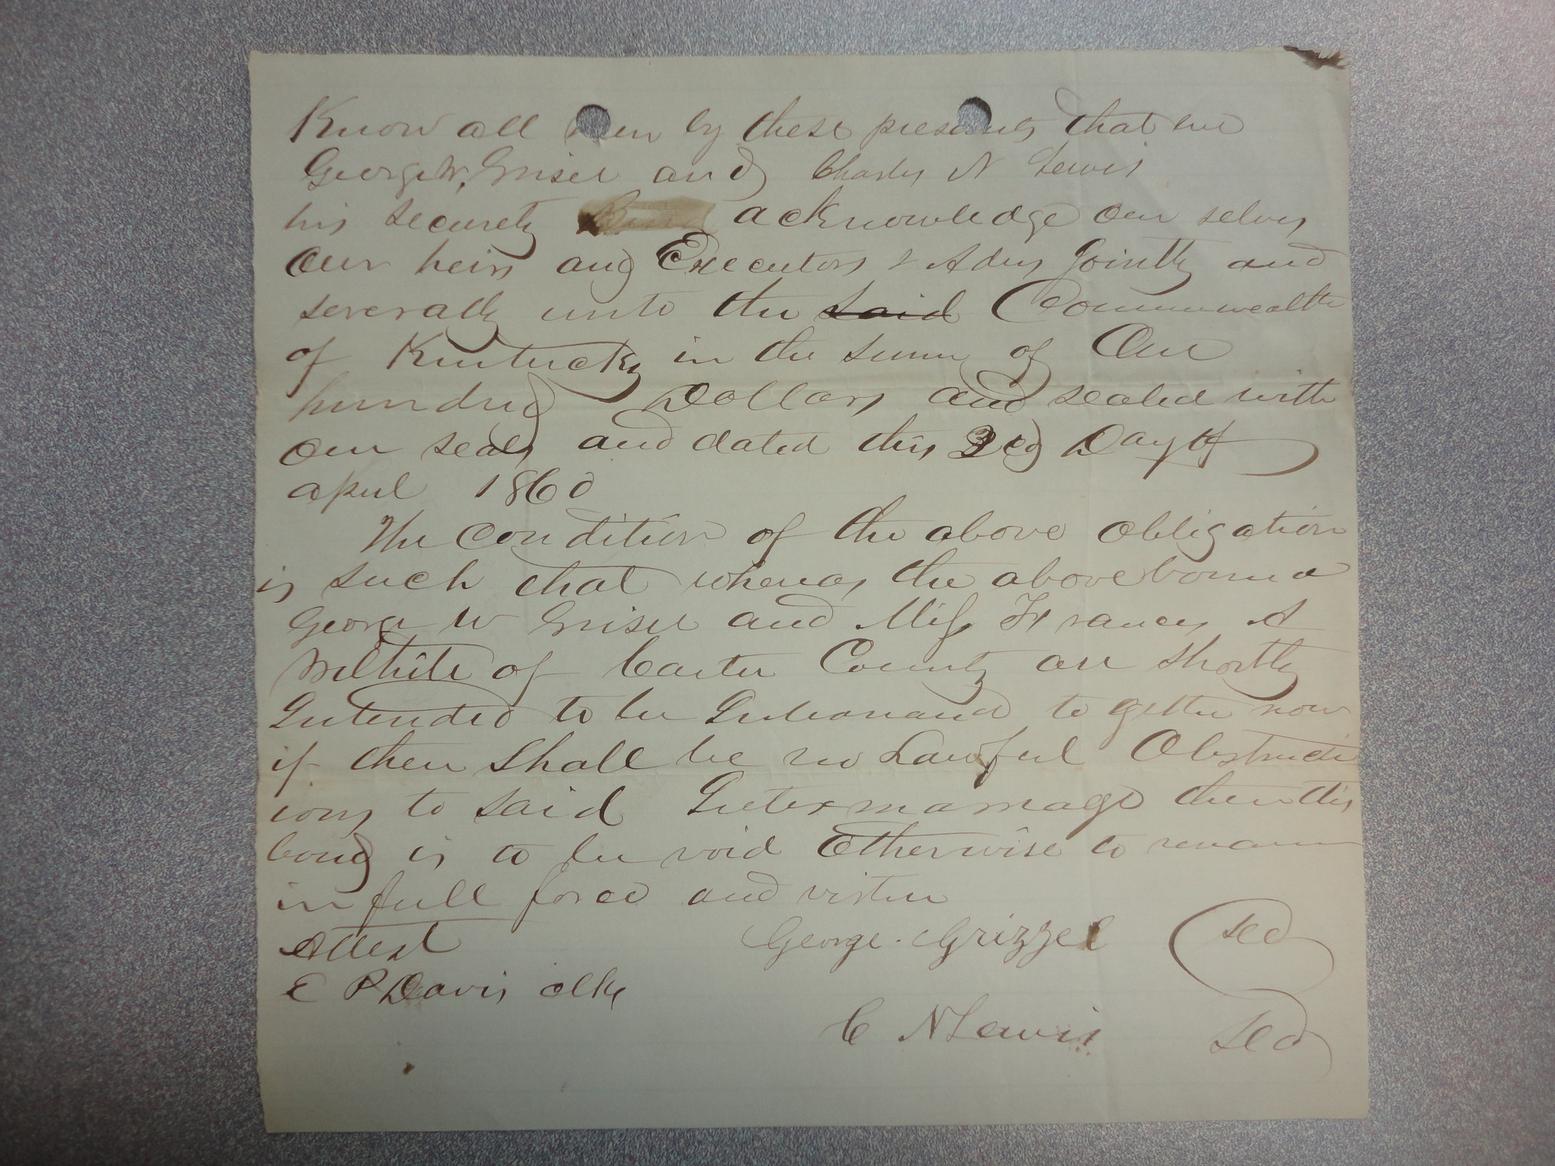 Know all men by these presents that we
George W. Grisel and Charles N Lewis
his security acknowledge our selvs
Our heirs and Executors & Adms Jointly and
severally unto the said Commonwealth
of Kentucky in the sum of One
hundred Dollars and sealed with
our seals and dated this 3rd Day of
april 1860
The condition of the above obligation
is such that whereas the above bound
George W Grisel and Miss Frances A
Wilhite of Carter County are shortly
Intended to be to gether now
if there shall be no Lawful Obstructi
ions to said Intermarriage then this
bond is to be void Otherwise to remain
in full force and virtue
Attest George Grizzel Sed
E P Davis clk
C N Lewis Sed